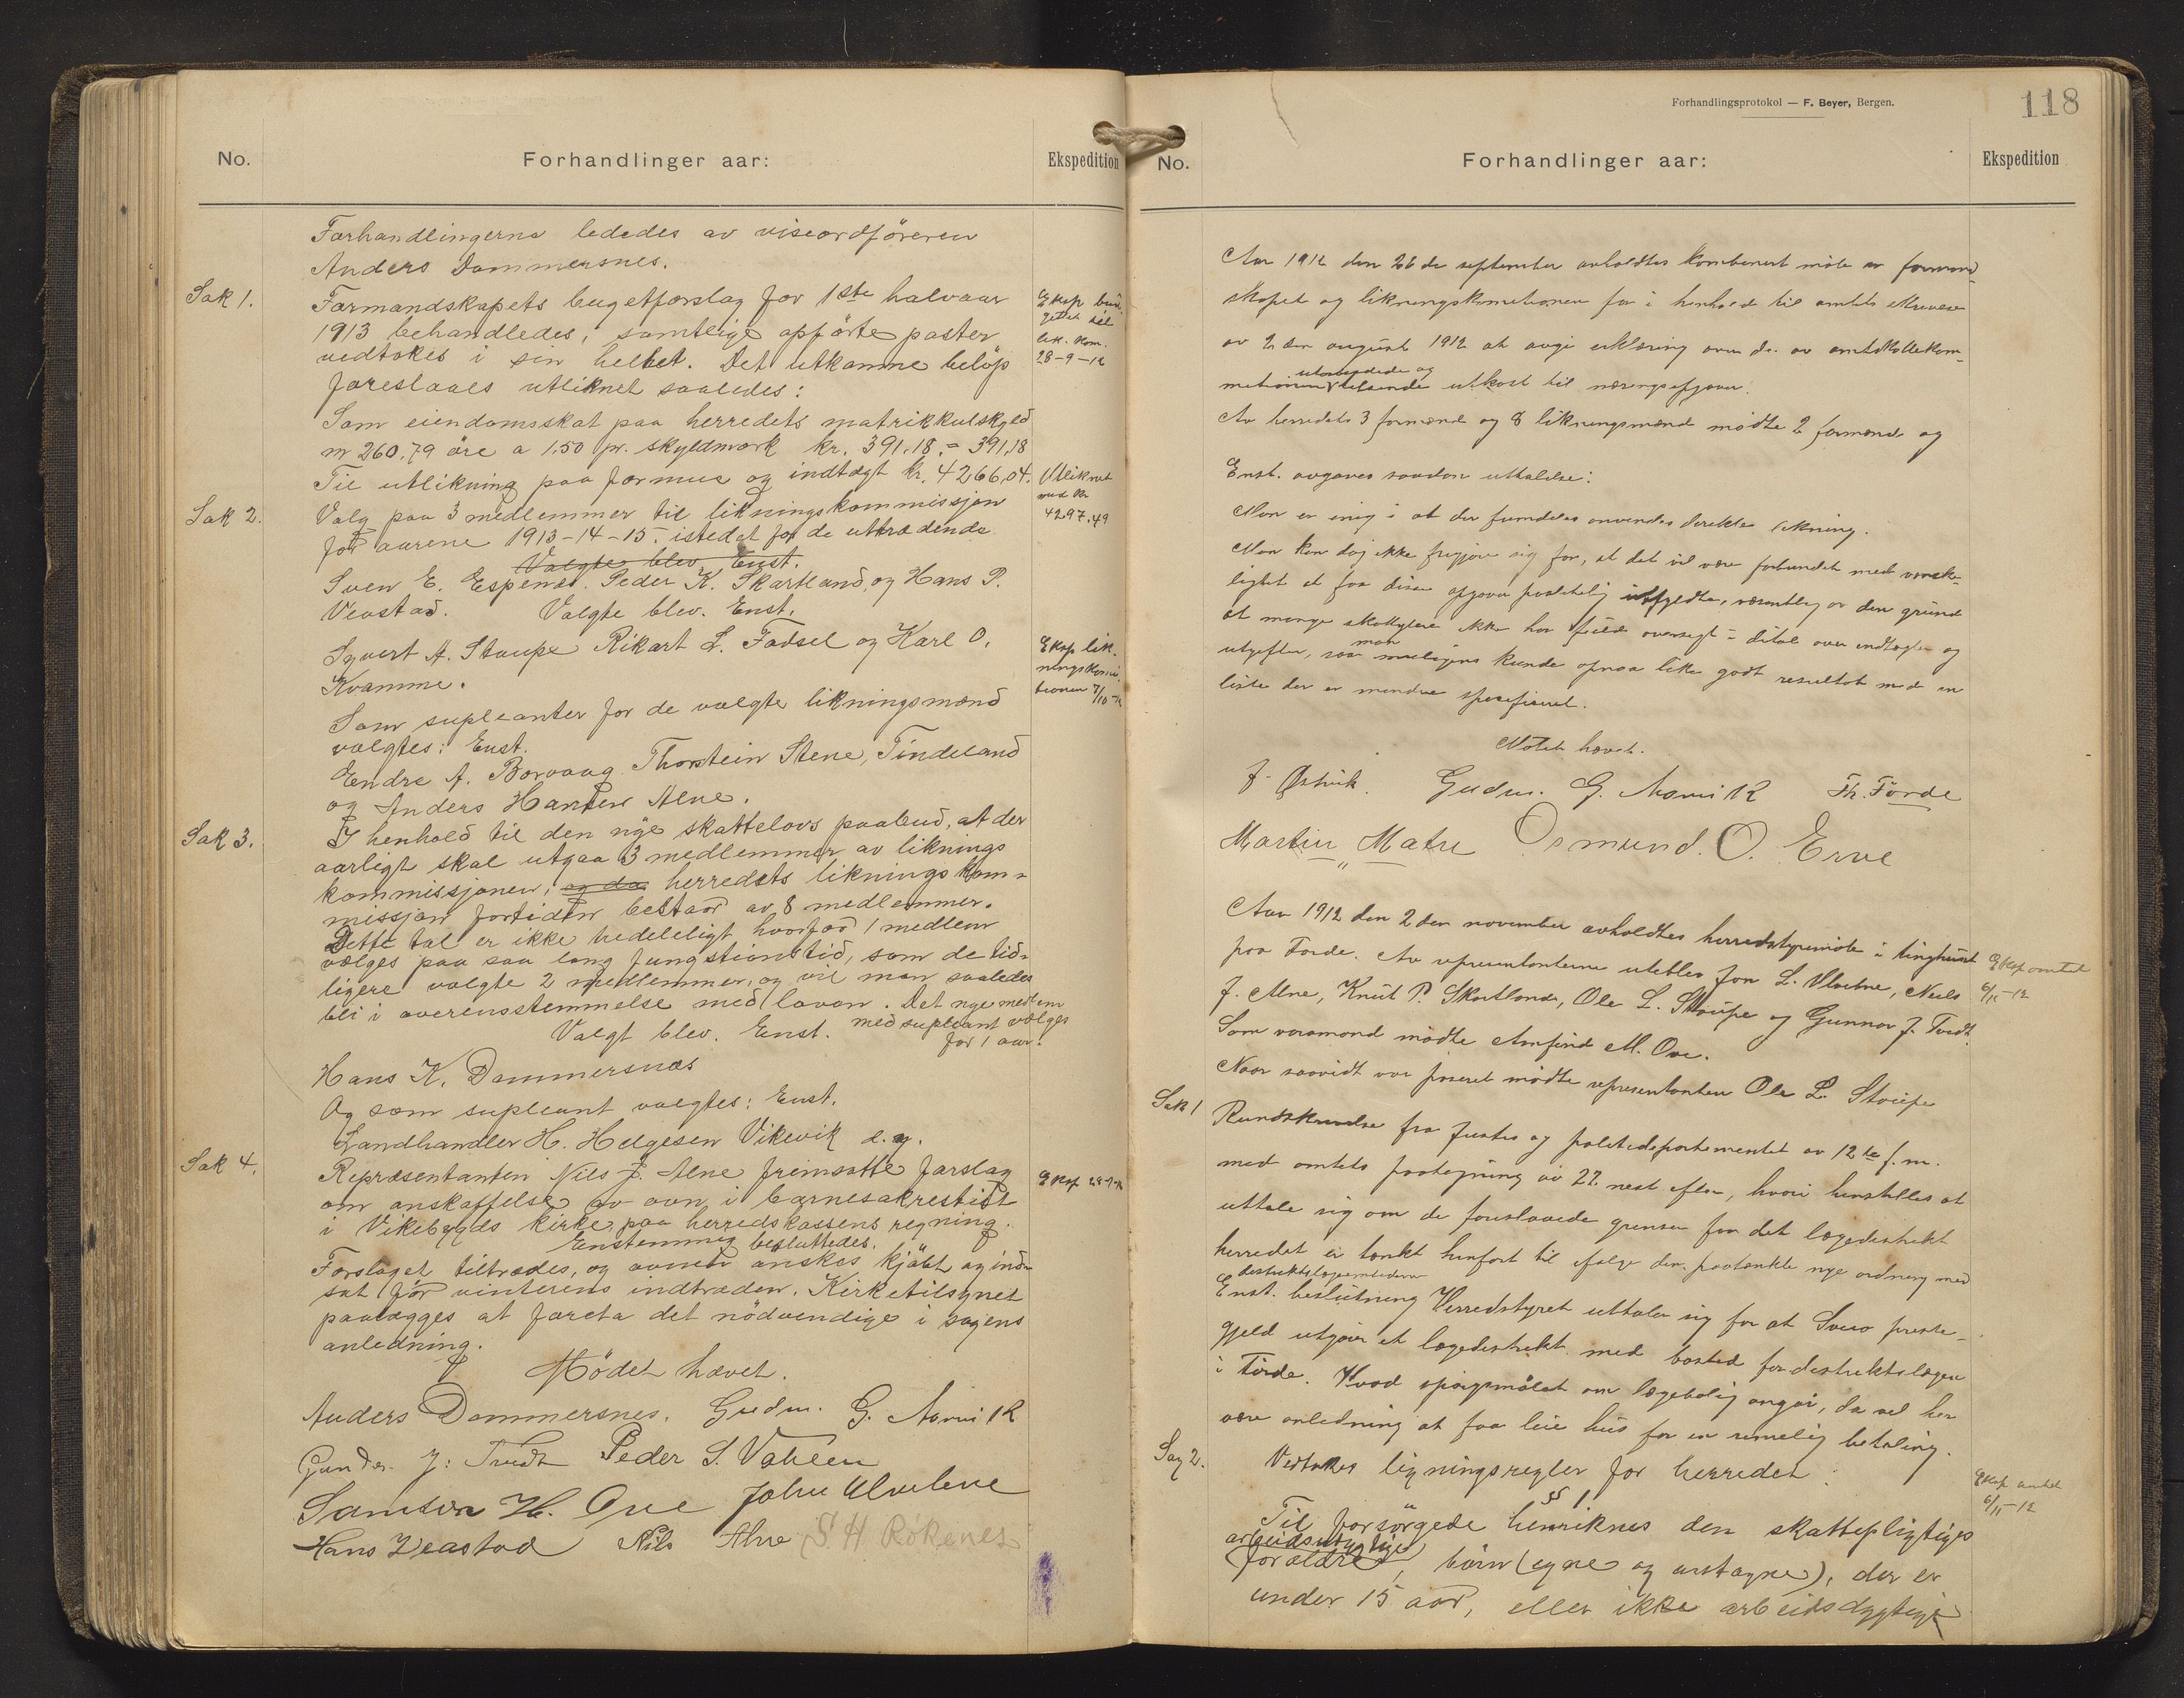 No.
Forhandlinger aar:
Ekspedition
Forhandlingerne lededes av viseordföreren
Anders Dommersnes.
Sak 1.
Formandskapets bugetforslag for 1ste halvaar
1913 behandledes, samtlige opförte poster
vedtokes i sin helhet. Det utkomne belöp
foreslaaes utliknet saaledes:
Som eiendomsskat paa herredets matrikkulskyld
m 260,79 öre a 1.50 pr. skyldmark kr. 391.18 = 391,18
Til utlikning paa formue og indtægt kr. 4266,04.
Eksp bud-
gettet til
lik. kom.
28-9-12
Utliknet
med kr
4297.49
Sak 2.
Valg paa 3 medlemmer til likningskommissjon
for aarene 1913-14-15. istedet for de uttrædende
Valgte blev Enst.
Sven E. Espenes. Peder K. Skartland, og Hans P.
Veastad. Valgte blev. Enst.
Syvert A. Staupe Rikart L. Fadsel og Karl O.
Kvamme.
Eksp lik-
ningskomi
tionen 7/10-12
Som supleanter for de valgte likningsmænd
valgtes: Enst.
Endre A. Borvaag. Thorstein Stene, Tindeland
og Anders Hansen Alne.
Sak 3.
I henhold til den nye skattelovs paabud, at der
aarligt skal utgaa 3 medlemmer av liknings
kommissjonen, og da herredets likningskom-
missjon fortiden bestaar av 8 medlemmer.
Dette tal er ikke tredeleligt hvorfor 1 medlem
vælges paa saa lang fungstionstid, som de tid-
ligere valgte 2 medlemmer, og vil man saaledes
bli i overensstemmelse med loven. Det nye medlem
med supleant vælges
for 1 aar.
Valgt blev. Enst.
Hans K. Dommersnæs
Og som supleant valgtes: Enst.
Landhandler H. Helgesen Vikevik d.y.
Sak 4.
Repræsentanten Nils J. Alne fremsatte forslag
om anskaffelse av ovn i barnesakrestiet
i Vikebygds kirke paa herredskassens regning.
Enstemmig besluttedes.
Eksp 28-9-12
Forslaget tiltrædes, og ovnen önskes kjöbt og ind-
sat för vinterens indtræden. Kirketilsynet
paalægges at foreta det nödvendige i sagens
anledning.
Mödet hævet.
Anders Dommersnes. Gudm. G. Aarvik
Gunder J: Tvedt Peder S. Valleen
Samson H. Ove John Ulvelene
Hans Veastad Nils Alne S. H Rökenes
Forhandlingsprotokol — F. Beyer, Bergen.
118
No.
Forhandlinger aar:
Ekspedition
Aar 1912 den 26de september avholdtes kombinert möte av formand-
skapet og likningskomitionen for i henhold til amtets skrivelse
av 2den august 1912 at avgi erklæring over de av amtsskattekom-
utarbeidede og
utkast til næringsopgaver.
Av herredets 3 formænd og 8 likningsmænd mödte 2 formænd og
Enst. avgaves saadan uttalelse:
Man er enig i at der fremdeles anvendes direkte likning.
Man kan dog ikke frigjøre sig for, at det vil være forbundet med vanske-
lighet at faa disse opgaver paalitelig utfyldte, væsentlig av den grund
at mange skatteydere ikke har fuld oversegt i detal over indtægter og
man
utgefter, saa muligens kunde opnaa like godt resultat med en
liste der er mindre spesifisert.
Mötet hævet.
J. Østvik. Gudm. G. Aarvik Th. Förde
Martin Matre Osmund. O. Erve
Aar 1912 den 2den november avholdtes herredstyremöte i tinghuset
paa Förde. Av representanterne uteblev Jon L. Ulvelene, Neels
J. Alne, Knut P. Skartland, Ole L. Staupe og Gunnar J. Tvedt.
Som varamand mödte Arnfind M. Ove.
Eksp amtet
6/11-12
Naar saavidt var passeret mödte representanten Ole L. Staupe
Sak 1
Rundskrivelse fra Justis og politidepartementet av 12te f. m.
med amtets paategning av 22. nest efter, hvori henstilles at
uttale sig om de foreslaaede grenser for det lægedestrikt
herredet er tænkt henfört til ifölge den paatænkte nye ordning med
destriktslægeembederne
Enst. beslutning Herredstyret uttaler sig for at Sveio preste-
gjeld utgjør et lægedestrikt med bosted for destriktslægen
i Förde. Hvad spörgsmålet om lægebolig angår, da vil her
være anledning at faa leie hus for en rimelig betaling.
Sag 2.
Vedtakes ligningsregler for herredet.
Eksp amtet
6/11-12
§ 1
Til forsörgede henriknes den skattepligtiges
arbeidsudygtige
foraldre, börn (egne og antagne), der er
under 15 aar, eller ikke arbeidsdygtige